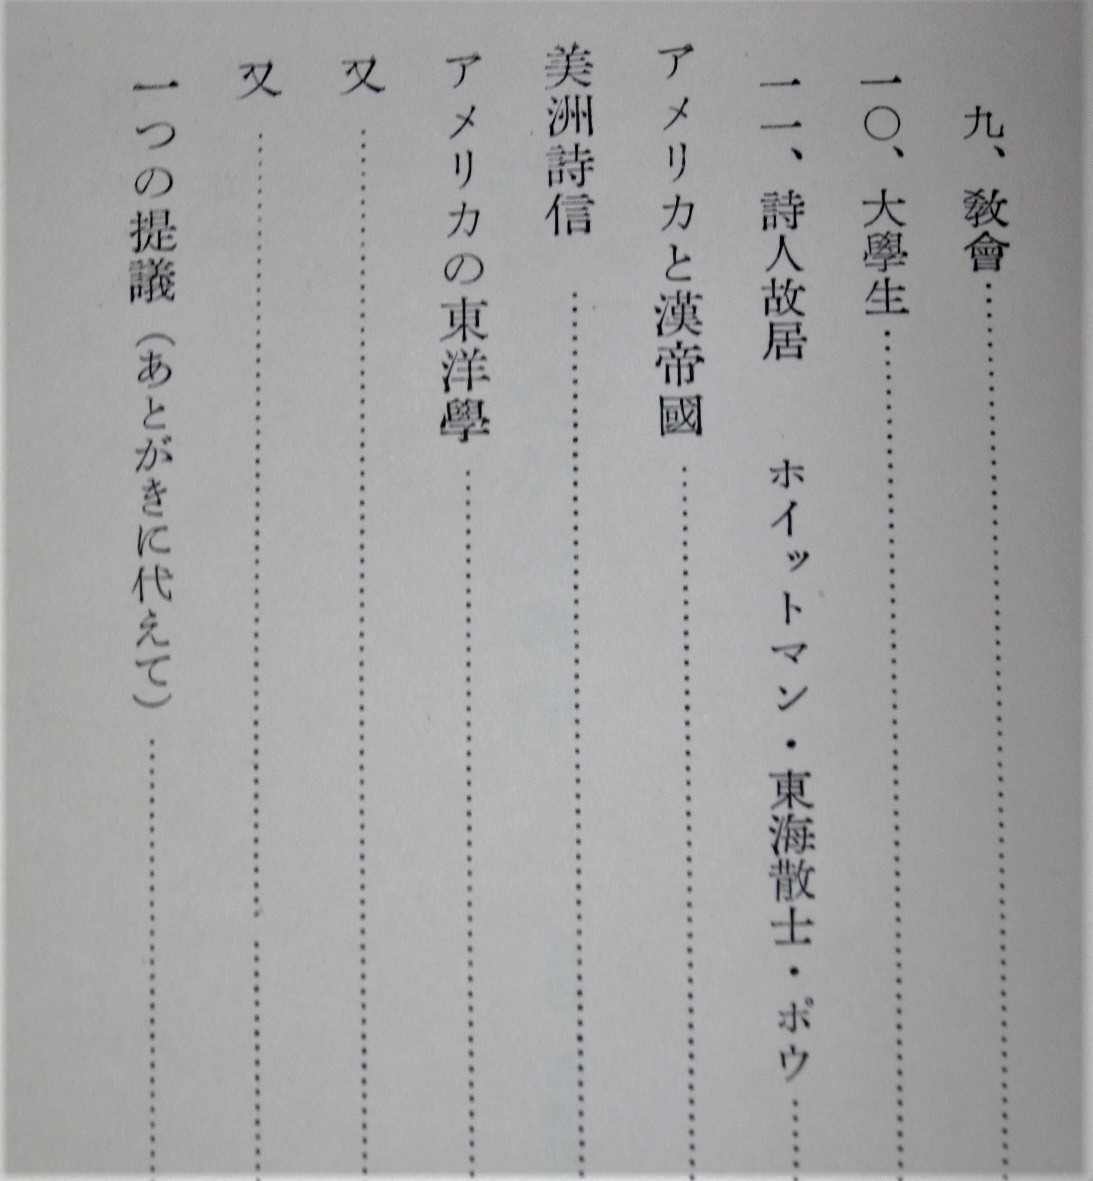 九、教會
一〇、大學生
一一、詩人故居　ホイットマン・東海散士・ポウ
アメリカと漢帝國
美洲詩信
アメリカの東洋學
又
又
一つの提議（あとがきに代えて）